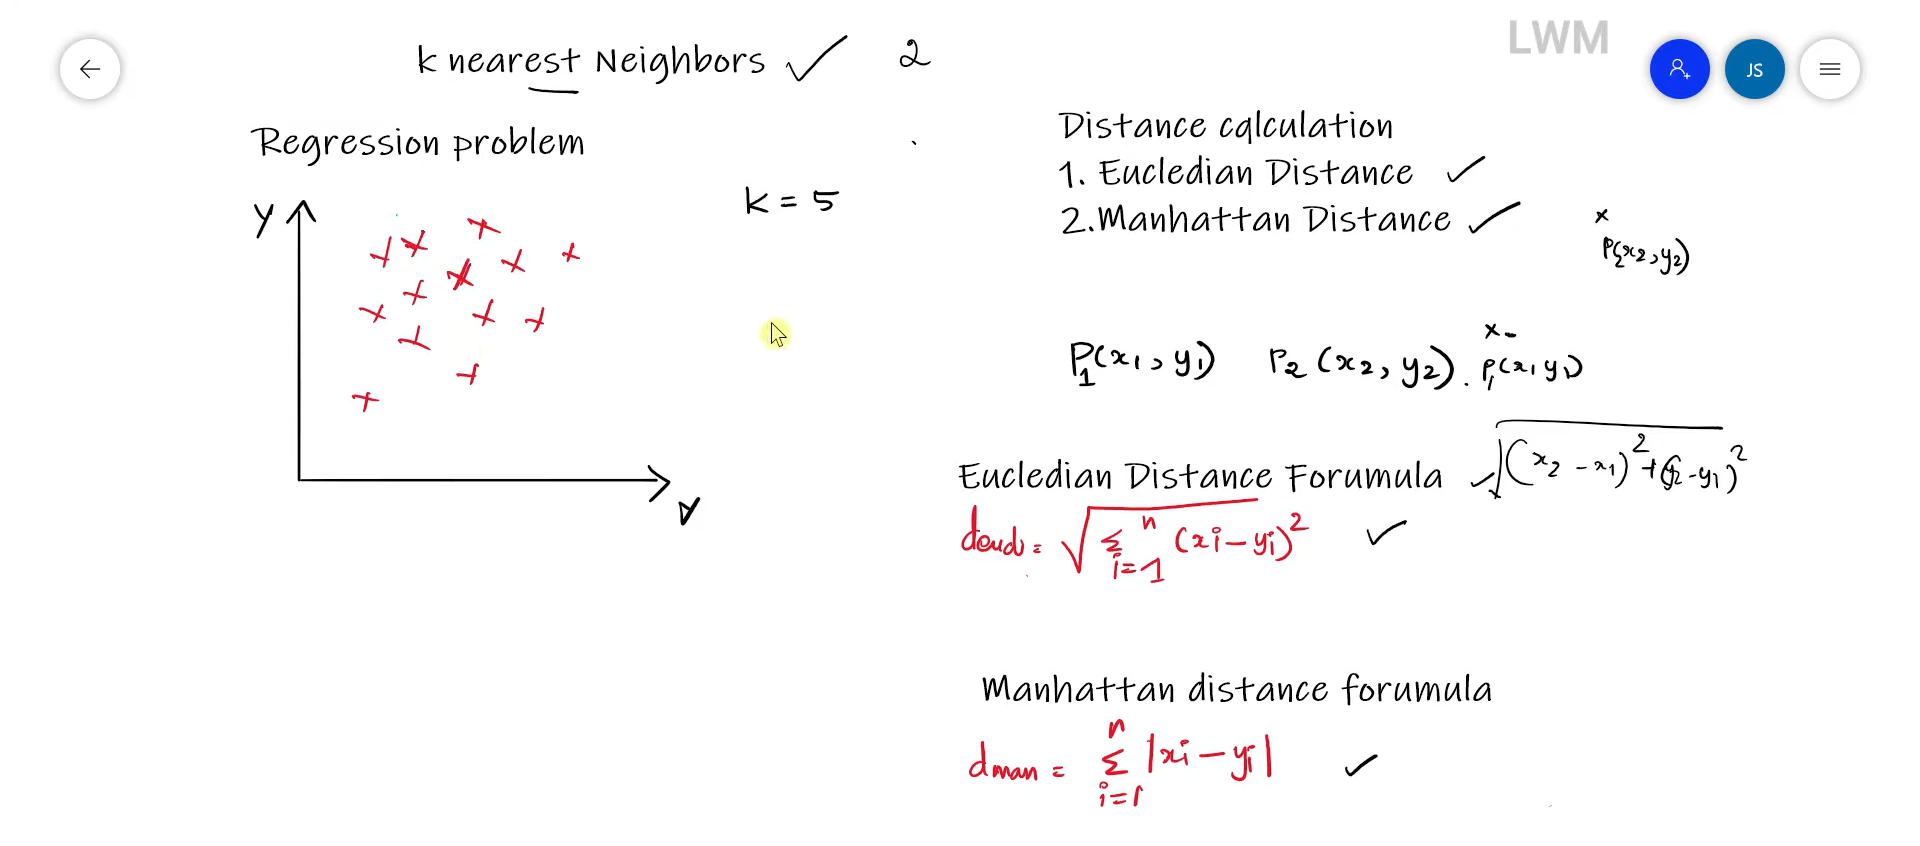 LWM
k nearest Neighbors ✓ 2
JS
Regression problem
Y
k = 5
Distance calculation
1. Eucledian Distance ✓
2.Manhattan Distance ✓
x
P2(x2, y2)
P1(x1, y1) P2 (x2, y2).
x
P1(x1 y1)
Eucledian Distance Forumula √(x2 - x1)² + (y2 - y1)²
deucd = √Σ i=1 n (xi - yi)² ✓
Manhattan distance forumula
dman = Σ i=1 n |xi - yi| ✓